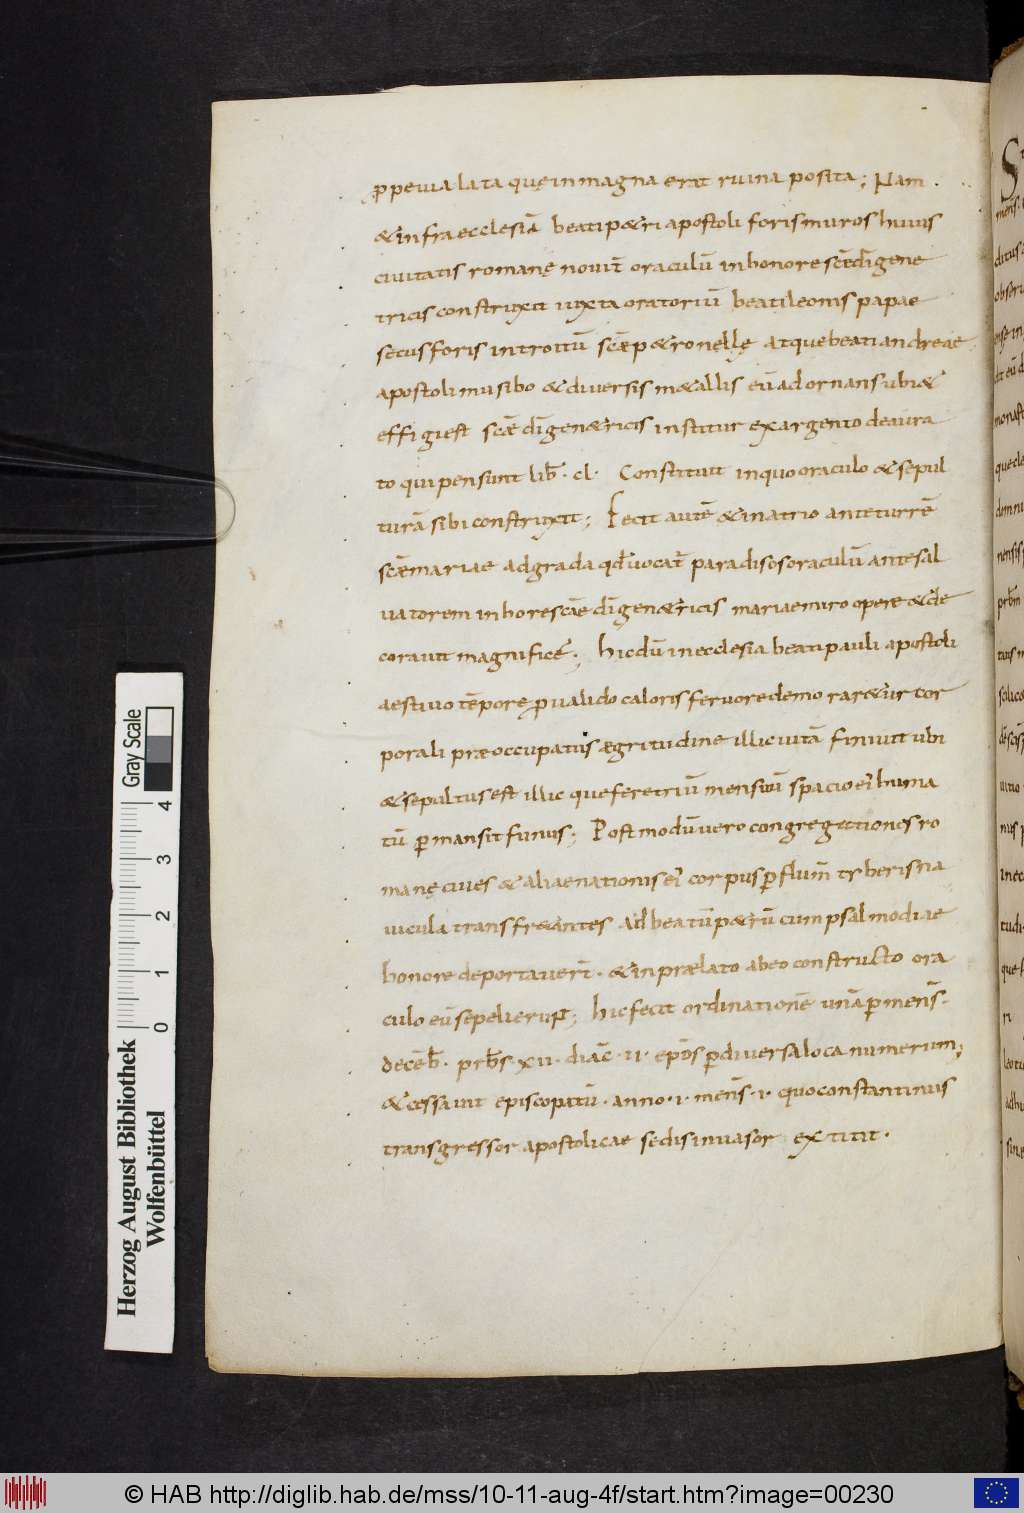 ꝓpe via lata quę in magna erat ruina posita; Nam
& infra ecclesiā beati p&ri apostoli foris muros huius
civitatis romanę novit̄ oraculū in honore scē dī gene
tricis construxit iuxta oratoriū beati leonis papae
secus foris introitū scē p&ronellę atque beati andreae
apostoli musibo & diversis m&allis eū adornans ubi &
effigies scę dī gen&ricis instituit ex argento deaura
to qui pensunt lib̄ · cl · Constituit in quo oraculo & sepul
turā sibi construxit; Fecit autē & in atrio ante turrē
scē mariae ad grada qđ vocat̄ paradiso oraculū ante sal
vatorem in hore scāe dī gen&ricis mariae miro opere & de
coravit magnifice; hic dū in ecclesia beati pauli apostoli
aestivo tēpore ꝓ valido caloris fervore demorar&ur cor
porali præoccupatus ægritudine illic vitā finivit ubi
& sepultus est illic que fere triū mensiū spacio eī huma
tū ꝑmansit funus; Postmodū vero congregationes ro
manę cives & aliae nationis eī corpus ꝑ flum̄ tyberis na
vicula transfr&antes ad beatū p&rū cum psalmodiae
honore deportaver̄ · & in prælato ab eo constructo ora
culo eū sepelierunt; hic fecit ordinationē unā ꝑ mens̄ ·
decēb̄ · prb̄s · xii · diāc · ii · epōs ꝑ diversa loca numerum;
& cessavit episcopatū · anno · i · mens̄ · i · quo constantinus
transgressor apostolicae sedis invasor extitit ·
Gray Scale
0 1 2 3 4
Herzog August Bibliothek
Wolfenbüttel
© HAB http://diglib.hab.de/mss/10-11-aug-4f/start.htm?image=00230